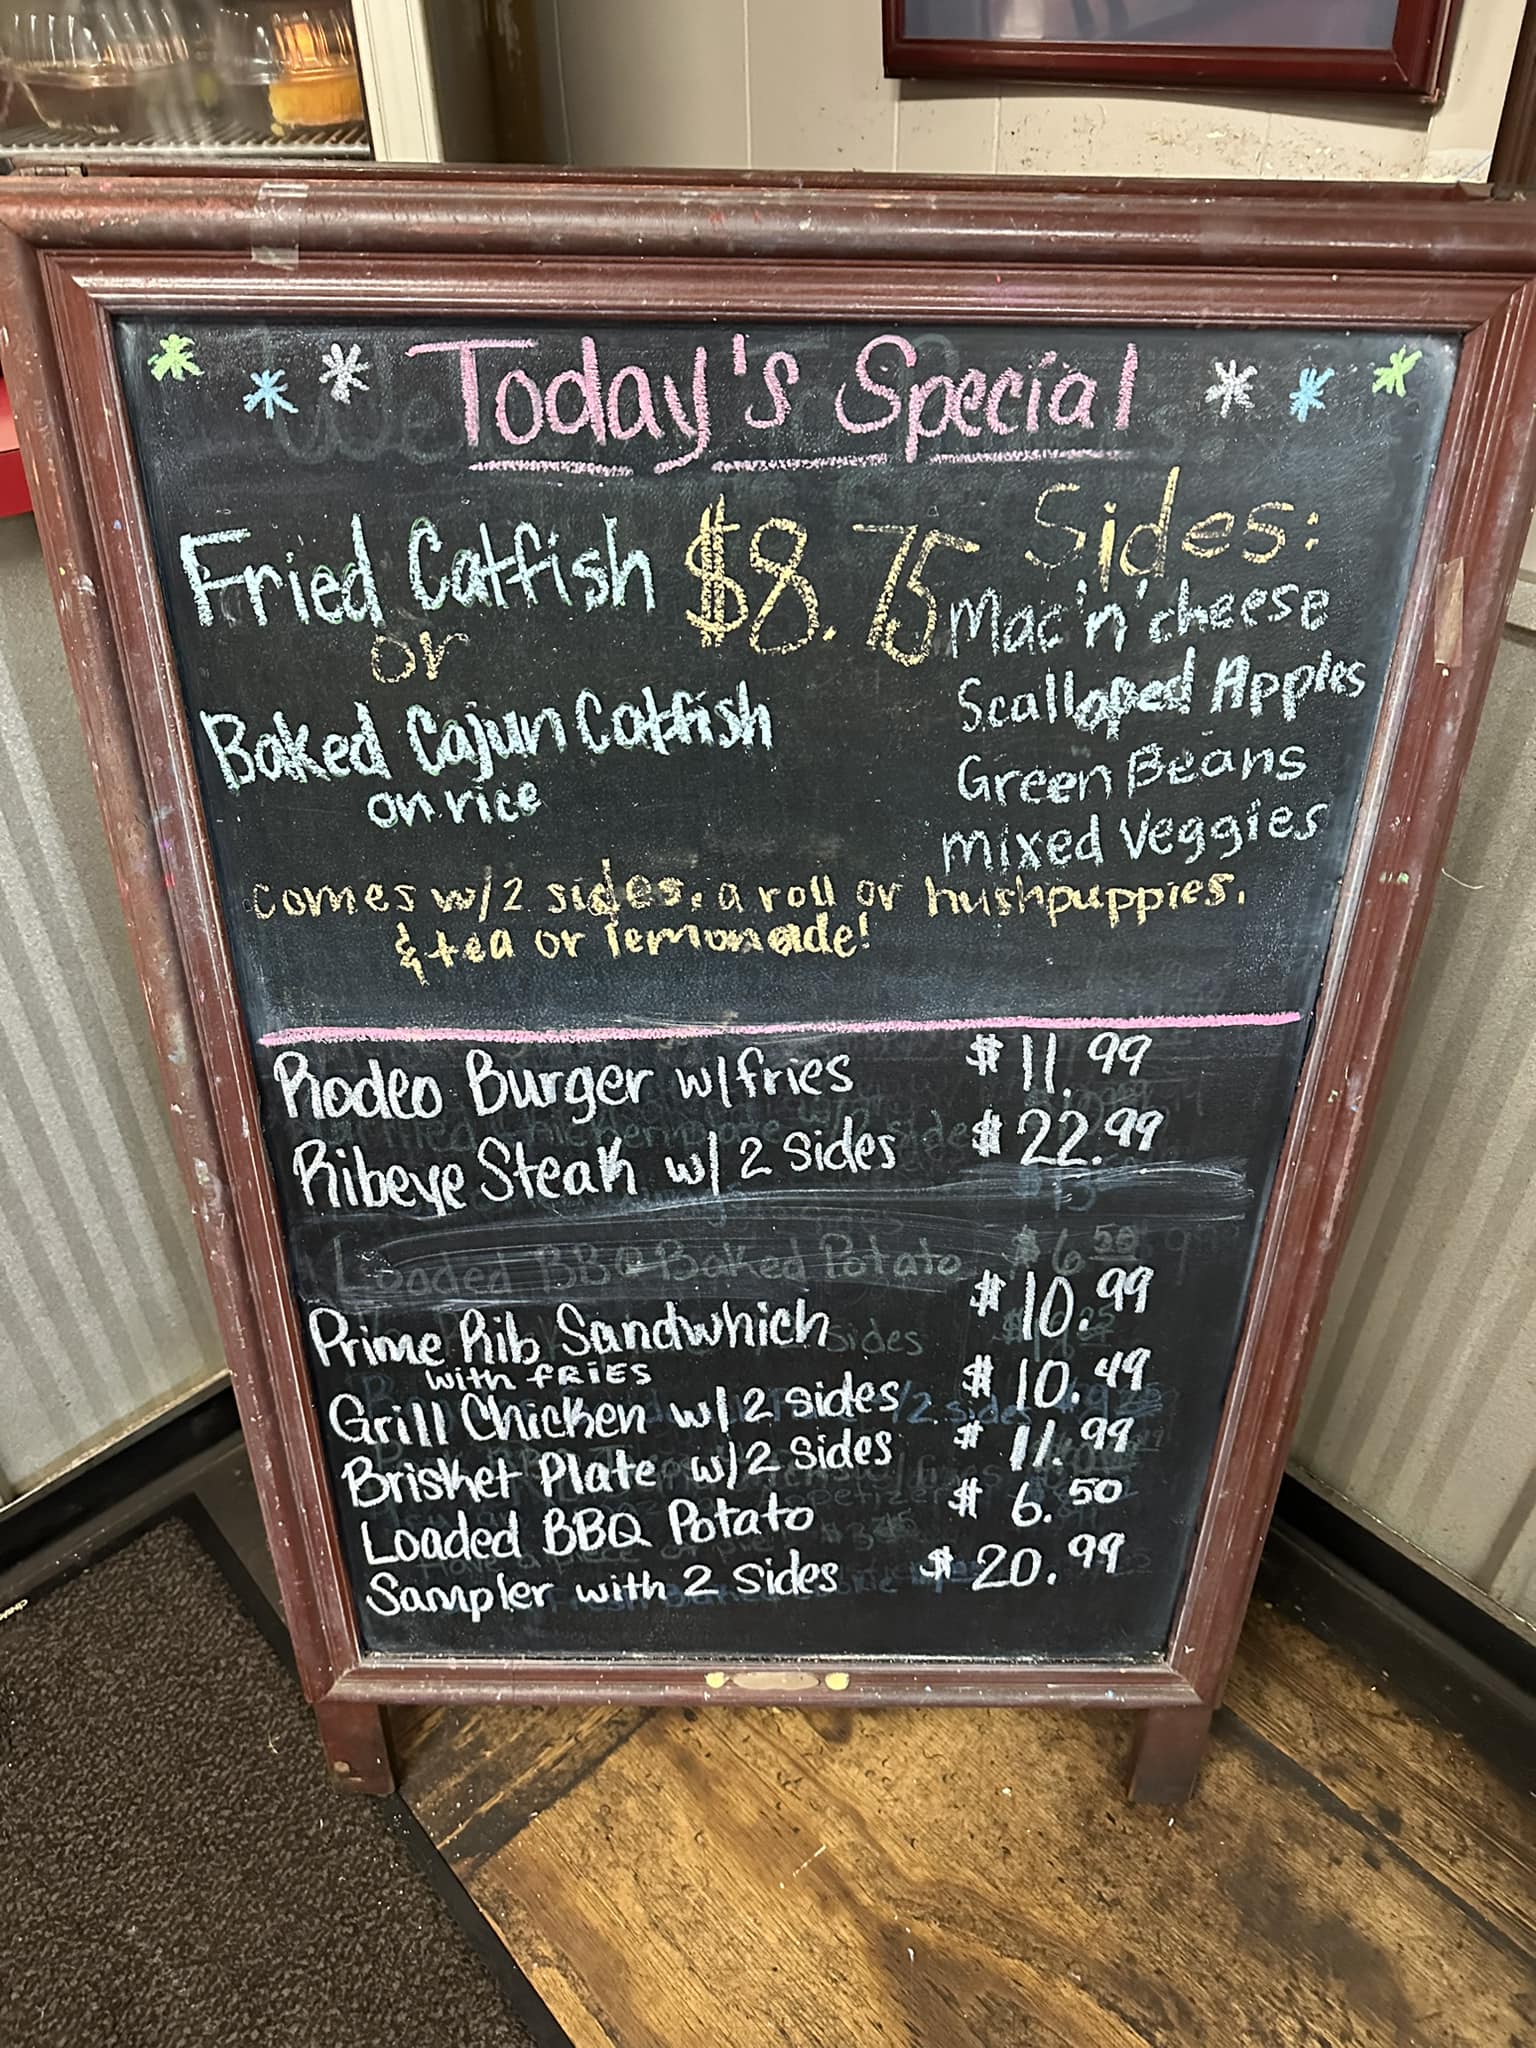 Today's Special
Fried Catfish $8.75
or
Baked Cajun Catfish
on rice
Sides:
Mac'n'cheese
Scalloped Apples
Green Beans
mixed veggies
comes w/2 sides, a roll or hushpuppies,
& tea or lemonade!
Rodeo Burger w/fries $11.99
Ribeye Steak w/2 sides $22.99
Loaded BBQ Baked Potato $6.50
Prime Rib Sandwhich $10.99
with FRiES
Grill Chicken w/2 sides $10.49
Brisket Plate w/2 sides $11.99
Loaded BBQ Potato $6.50
Sampler with 2 Sides $20.99